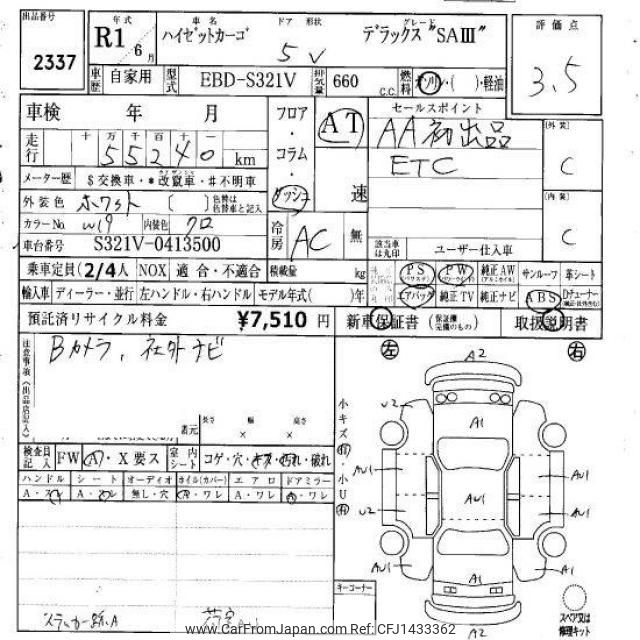 出品番号
2337
年式
R1 6月
車名
ハイゼットカーゴ
ドア 形状
5 V
グレード
デラックス "SAⅢ"
評価点
3.5
車歴 自家用
型式 EBD-S321V
排気量 660 C.C.
燃料 ガソリン・( )・軽油
車検 年 月
フロア・コラム・ダッシュ
AT 速
セールスポイント
AA初出品
ETC
[外装]
C
[内装]
C
走行 十 万 千 百 十 一
55240 km
メーター歴 $交換車・*改竄車・#不明車
外装色 ホワイト ( ) 色替は色替車と記入
カラーNo. W19 内装色 クロ
車台番号 S321V-0413500
冷房 AC 無
該当車は丸印
ユーザー仕入車
乗車定員 2/4人 NOX 適合・不適合 積載量 kg
PS PW 純正AW サンルーフ 革シート
輸入車 ディーラー・並行 左ハンドル・右ハンドル モデル年式( )年
エアバッグ 純正TV 純正ナビ ABS Dチューナー
預託済リサイクル料金 ¥7,510 円
新車保証書 (保証欄完備のもの) 取扱説明書
注意事項(出品店記入)
Bカメラ、社外ナビ
左 右
A2
小キズ
小U
U2
A1
AU1
AU1
AU1
U2
AU1
AU1
A1
AU1
A2
諸元 長さ × 幅 × 高さ
検査員記入 FW A・X要ス 室内シート コゲ・穴・キズ・汚れ・破れ
ハンドル シート オーディオ ホイル(カバー) エアロ ドアミラー
A・スリ A・スレ 無し・穴 A・ワレ A・ワレ A・ワレ
キーコーナー
スペア又は修理キット
www.CarFromJapan.com Ref:CFJ1433362